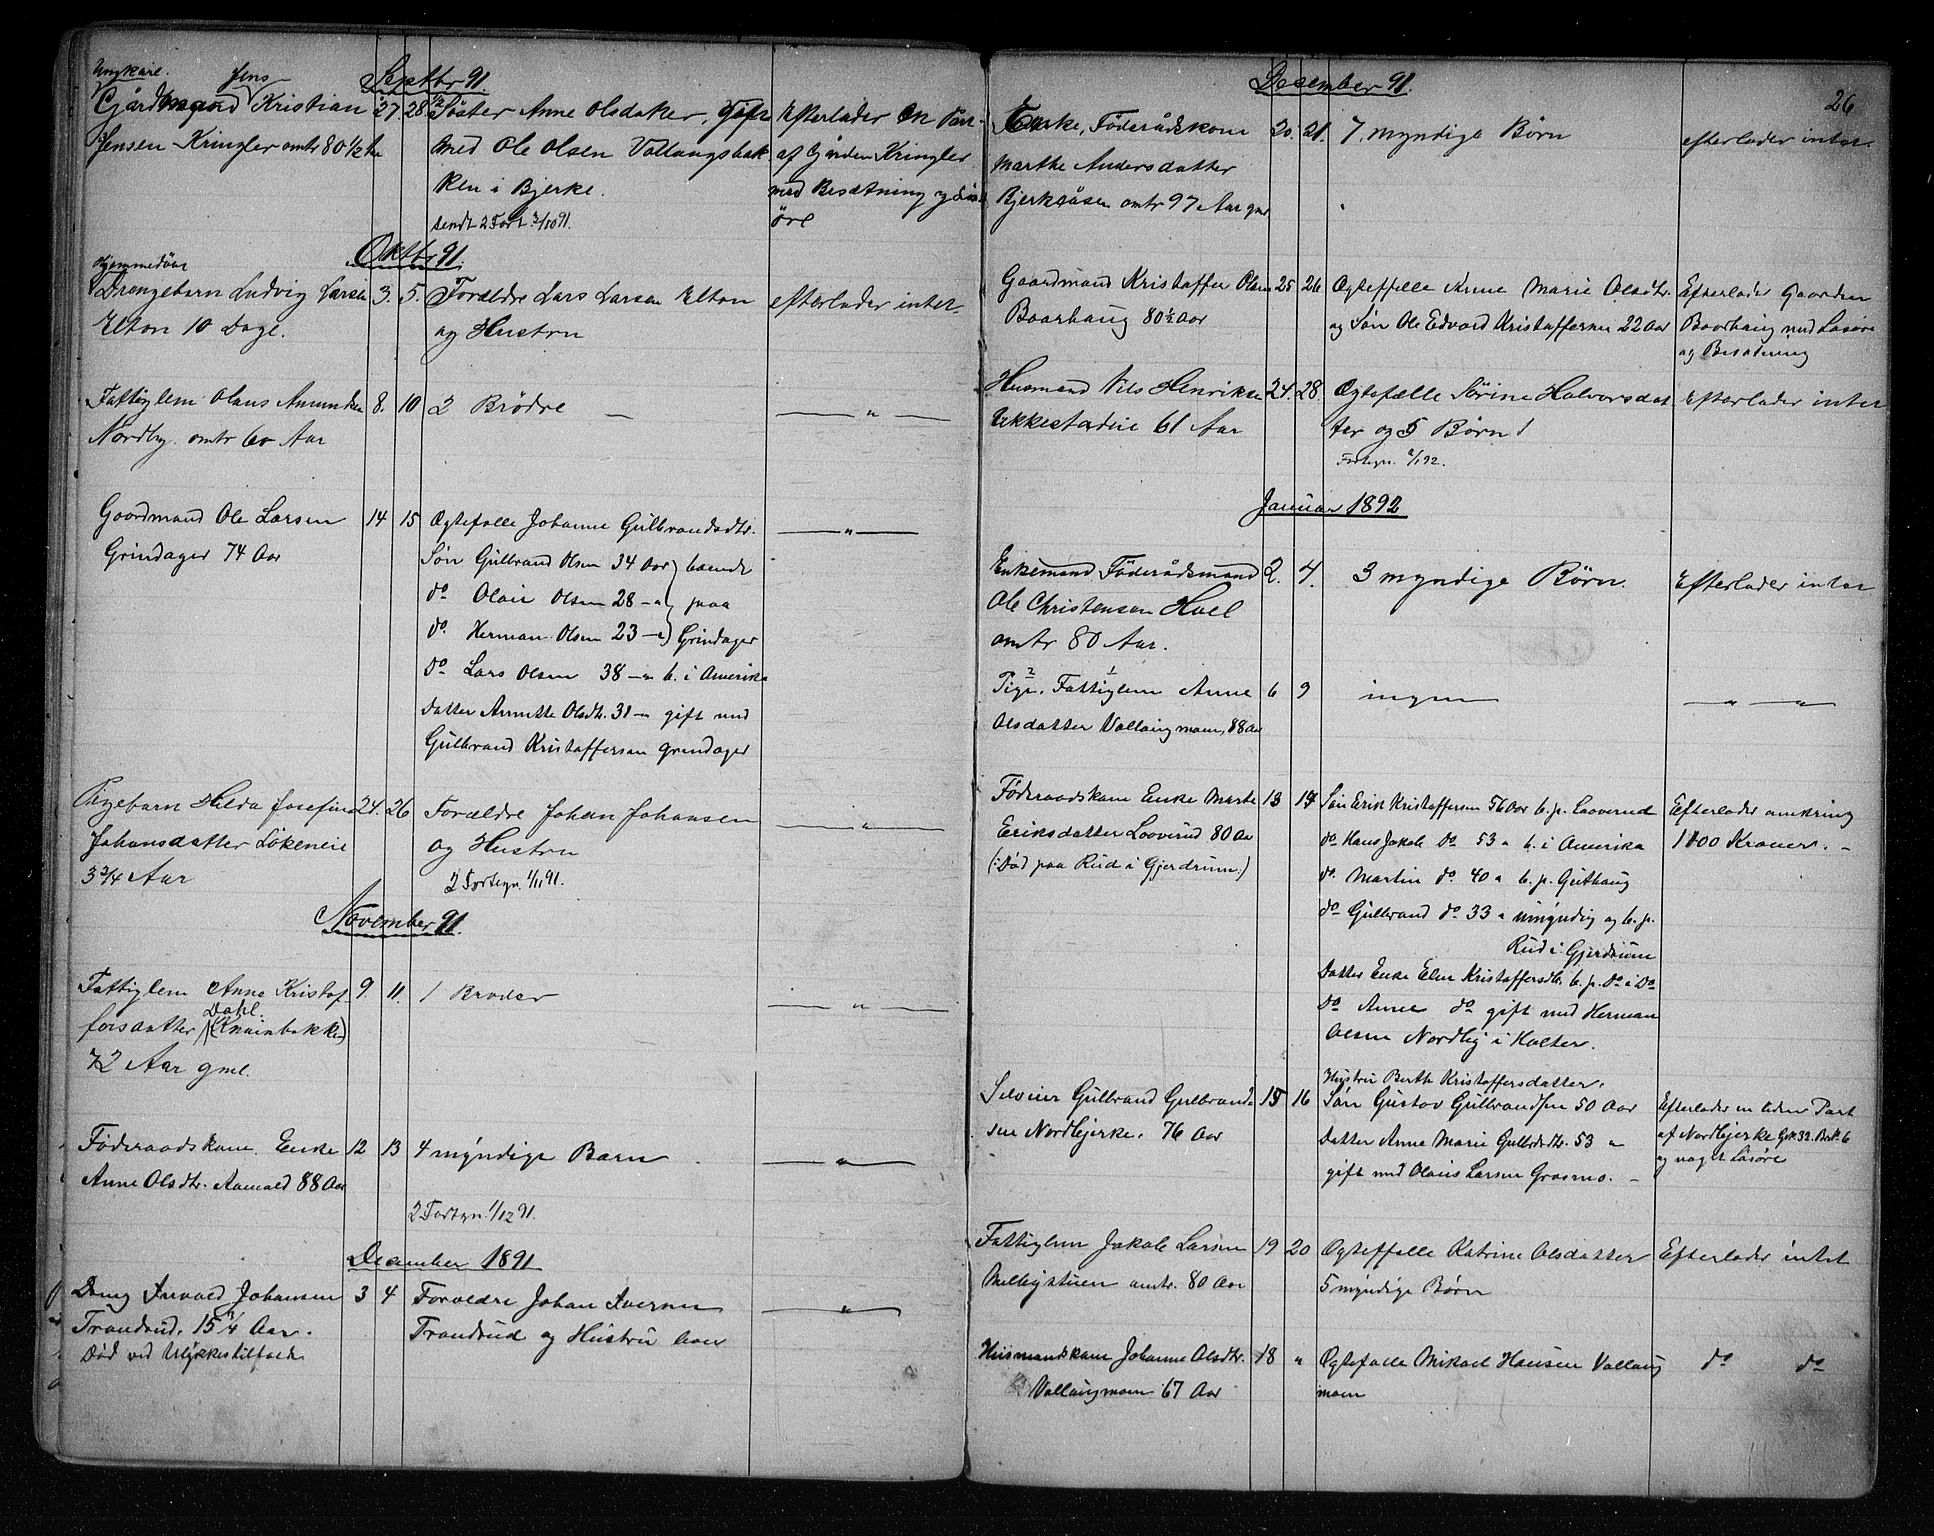 Septbr 91.
Ungkarl. Jens
Gårdmand Kristian 27 28 1/2 Søster Anne Olsdater, Gift Efterlader En Part
Jensen Kringler omtr 80 1/2 Aar med Ole Olsen Vallaugsbak af Gården Kringler
ken i Bjerke. med Besætning og Løs
sendt 2 Fort. 3/10 91. øre
Oktbr 91.
Hjemmedøbt
Drengebarn Ludvig Larsen 3. 5. Forældre Lars Larsen Elton efterlader intet.
Elton 10 Dage. og Hustru
Fattiglem Olaus Amundsen 8. 10 2 Brödre — — " —
Nordby. omtr 60 Aar
Gaardmand Ole Larsen 14 15 Ægtefælle Johanne Gulbrandsdtr. — " —
Grindager 74 Aar Søn Gulbrand Olsen 34 Aar boende
do Olaie Olsen 28 — " paa
do. Herman Olsen 23 — " Grindager
do Lars Olsen 38 — " b. i Amerika
datter Annette Olsdtr. 31 — " gift med
Gulbrand Kristoffersen Grindager
Pigebarn Hilda Josefine 24. 26 Forældre Johan Johansen — " —
Johansdatter Løkeneie og Hustru
3 3/4 Aar 2 Fortegn. 1/11 91.
November 91.
Fattiglem Anne Kristof 9. 11. 1 Broder — " —
Dahl.
forsdatter (Knainbakke)
72 Aar gml.
Føderaadskone. Enke 12 13 4 myndige Barn — " —
Anne Olsdtr. Aamold 88 Aar
2 Fortegn. 1/12 91.
December 1891
Dreng Invald Johansen 3 4 Forældre Johan Iversen — " —
Trandrud. 15 1/4 Aar. Trandrud og Hustru
Død ved Ulykkestilfælde
26
Desember 91.
Enke, Föderådskone 20. 21. 7 myndige Børn efterlader intet.
Marthe Andersdatter
Bjerkeåsen omtr 97 Aar gml
Gaardmand Kristoffer Olsen 25 26 Ægtefelle Anne Marie Olsdtr. Efterlader Gaarden
Baarhaug 80 1/2 Aar og Søn Ole Edvard Kristoffersen 22 Aar Baarhaug med Løsøre
og Besætning
Husmand Nils Henriksen 24. 28. Ægtefælle Sørine Halvorsdat Efterlader intet
Ukkestadeie 61 Aar ter og 5 Børn
Fortegn. 2/1 92.
Januar 1892
Enkemand Föderådsmand 2. 4. 3 myndige Børn. Efterlader intet
Ole Christensen Hoel
omtr 80 Aar.
2 1
Pige. Fattiglem Anne 6 9 ingen — " — " —
Olsdatter Vallaugmoen, 88 Aar
Føderaadskone Enke Marte 13 14 Søn Erik Kristoffersen 56 Aar b. p. Laaverud Efterlader omkring
Eriksdatter Laaverud 80 Aar do Hans Jakob do 53 " b. i Amerika 1000 Kroner. —
(: Død paa Rud i Gjerdrum.) do. Martin do. 40 " b. p. Guthaug
do Gulbrand do 33 " umyndig og b. p.
Rud i Gjerdrum
Datter Enke Elen Kristoffersdtr. b. p. do i do
do Anne do gift med Herman
Olsen Nordby i Holter.
Hustru Berth Kristoffersdatter.
Selveier Gulbrand Gulbrand 15 16 Søn Gustav Gulbrandsen 50 Aar Efterlader en liden Part
sen Nordbjerke. 76 Aar Datter Anne Marie Gulbrdsdtr. 53 " af Nordbjerke Gno 32. Brk. 6
gift med Olaus Larsen Grosmo. — og noget Løsøre
Fattiglem Jakob Larsen 19 20 Ægteffelle Katrine Olsdatter Efterlader intet
Melbystuen omtr. 80 Aar 5 myndige Børn
Husmandskone Johanne Olsdtr. 18 " Ægtefælle Mikael Hansen Vallaug do do
Vallaugmoen 67 Aar moen